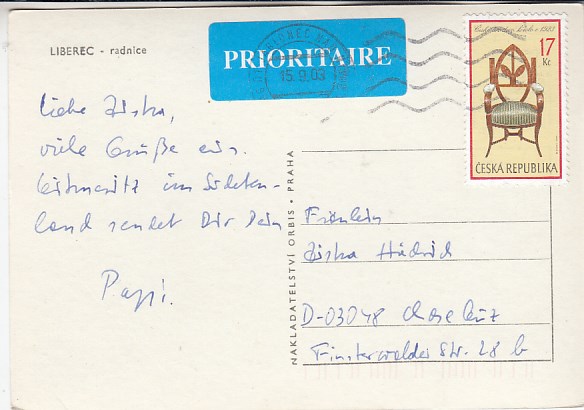 LIBEREC - radnice
PRIORITAIRE
15.9.03
17
Kč
ČESKÁ REPUBLIKA
Liebe Ziska,
viele Grüße aus
Leitmeritz im Sudeten-
land sendet Dir Dein
Papi.
NAKLADATELSTVÍ ORBIS • PRAHA
Fräulein
Ziska
D-03048
Finsterwalder Str. 28 b